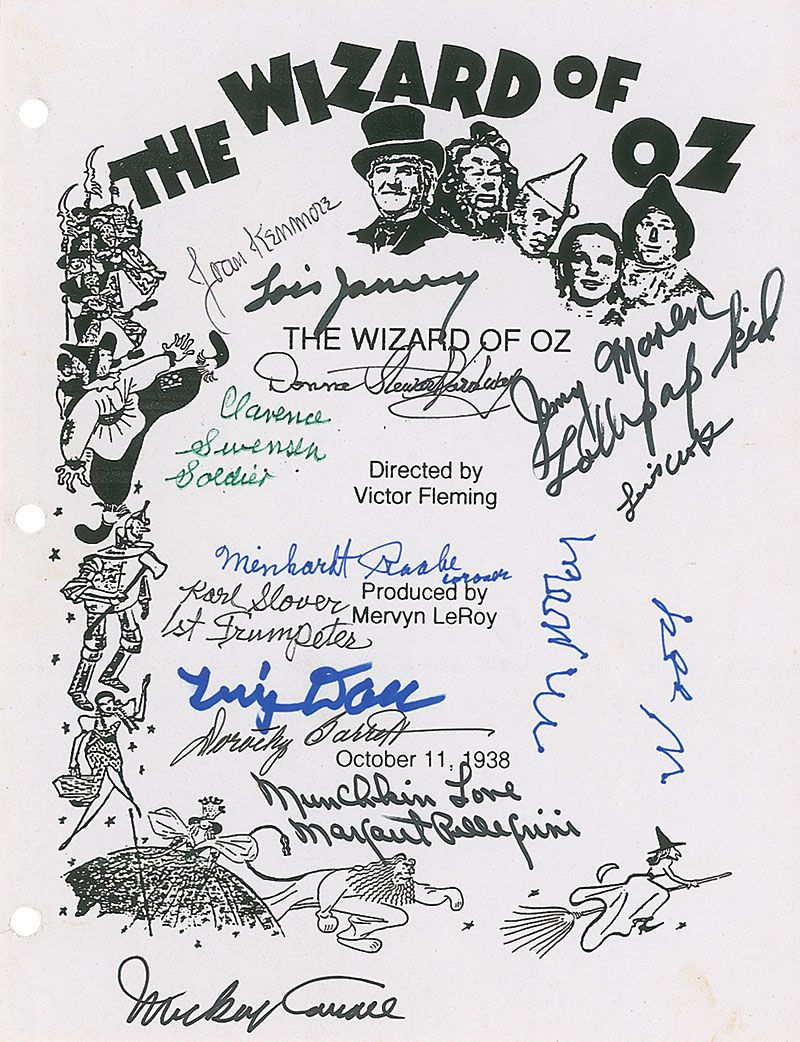 THE WIZARD OF OZ
Joan Kenmore
Lois January
THE WIZARD OF OZ
Donna Stewart Hardway
Jerry Maren
Lollipop Kid
Clarence
Swensen
Soldier
Lewis Croft
Directed by
Victor Fleming
Meinhardt Raabe
coroner
Karl Slover
1st Trumpeter
Produced by
Mervyn LeRoy
Dorothy Barrett
October 11, 1938
Munchkin Love
Margaret Pellegrini
Mickey Carroll